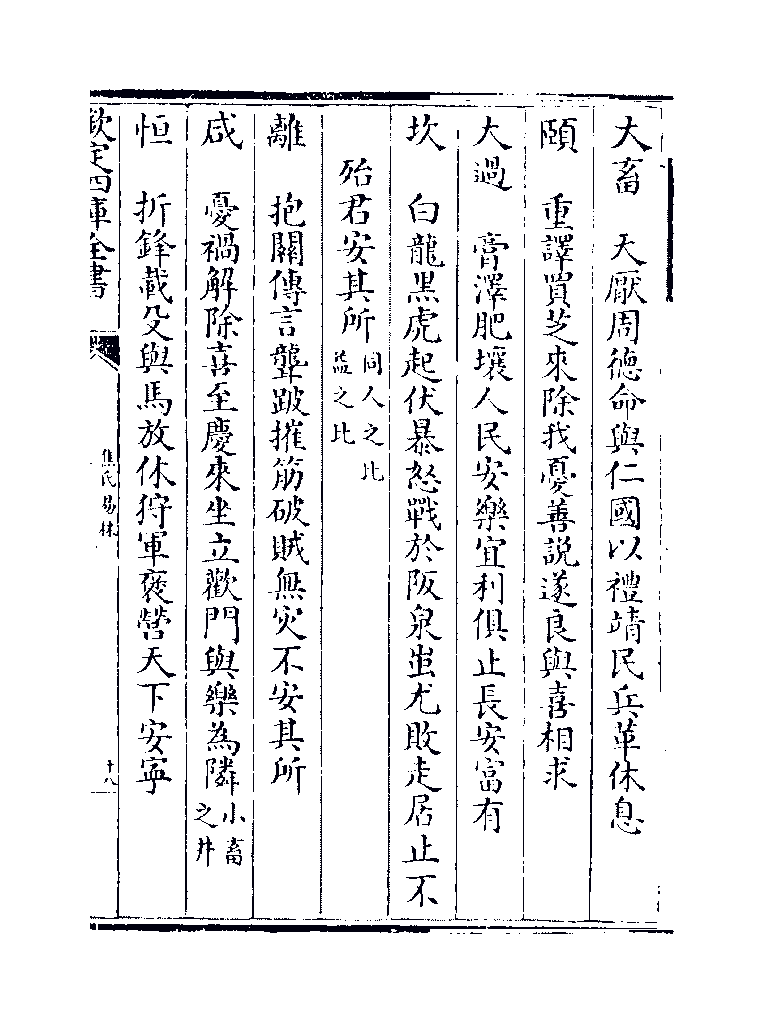 大畜　天厭周德命與仁國以禮靖民兵革休息
頤　重譯買芝來除我憂善說遂良與喜相求
大過　膏澤肥壤人民安樂宜利俱止長安富有
坎　白龍黑虎起伏暴怒戰於阪泉蚩尤敗走居止不
殆君安其所同人之比
益之比
離　抱關傳言聾跛摧筋破賊無灾不安其所
咸　憂禍解除喜至慶來坐立歡門與樂為隣小畜
之井
恒　折鋒載殳與馬放休狩軍褒營天下安寧
欽定四庫全書
焦氏易林
十八